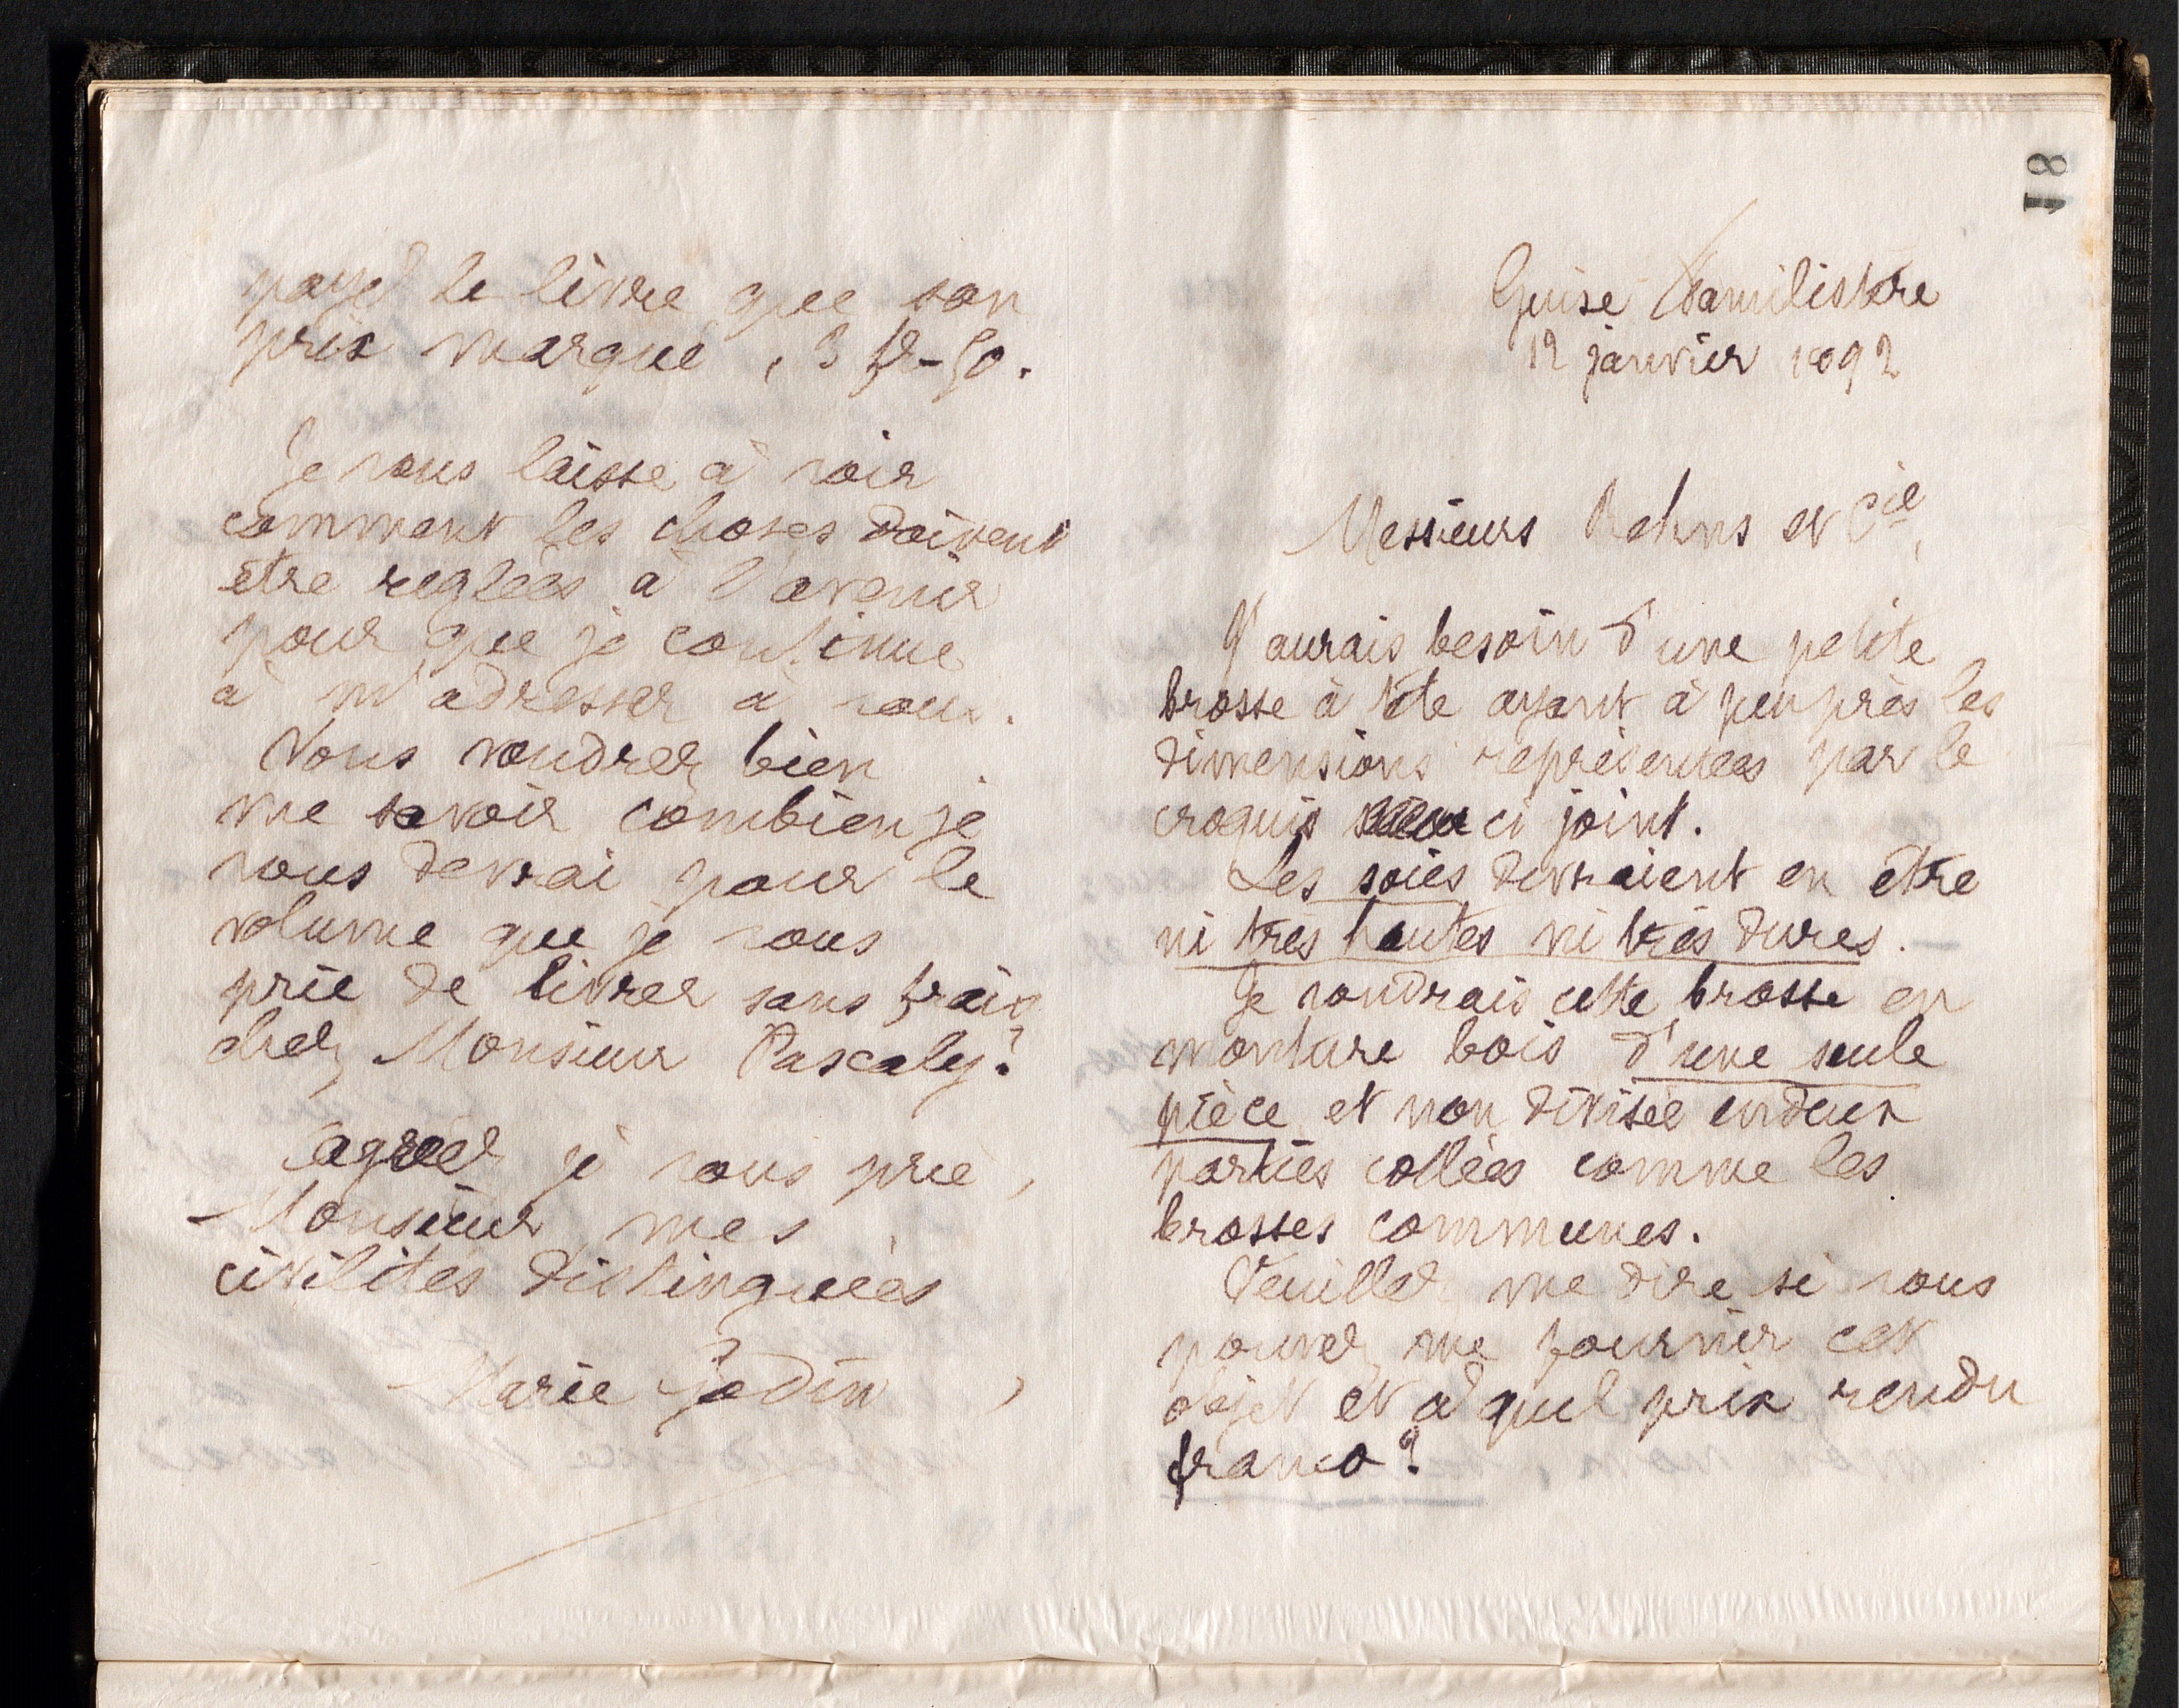 payé le livre que son
prix marqué, 3 fr-50.
Je vous laisse à voir
comment les choses doivent
être réglées à l'avenir
pour que je continue
à m'adresser à vous.
Vous voudrez bien
me savoir combien je
vous devrai pour le
volume que je vous
prie de livrer sans frais
chez Monsieur Pascaly?
Agréez je vous prie,
Monsieur, mes
civilités distinguées
Marie Godin
18
Guise Familistère
12 janvier 1892
Messieurs et Cie,
J'aurais besoin d'une petite
brosse à tête ayant à peu près les
dimensions représentées par le
croquis ci joint.
Les soies devraient en être
ni très hautes ni très dures.
Je voudrais cette brosse en
monture bois d'une seule
pièce et non divisée en deux
parties collées comme les
brosses communes.
Veuillez me dire si vous
pouvez me fournir cet
objet et à quel prix rendu
franco?